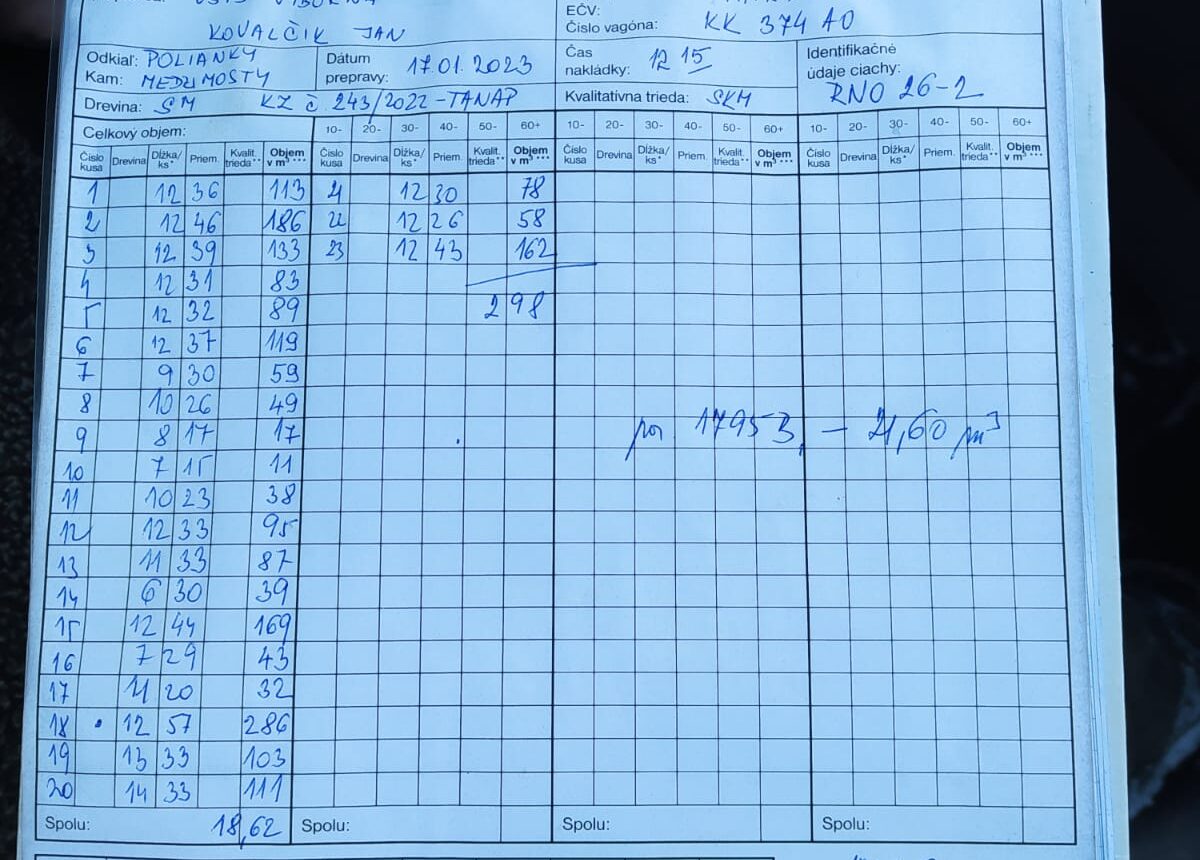 KOVALČIK JAN
EČV:
Číslo vagóna: KK 374 AO
Odkiaľ: POLIANKY
Kam: MEDZIMOSTY
Dátum prepravy: 17.01.2023
Čas nakládky: 12 15
Identifikačné údaje ciachy: RNO 26-2
Drevina: SM KZ č 243/2022-TANAP
Kvalitatívna trieda: SKM
Celkový objem: 10- 20- 30- 40- 50- 60+ 10- 20- 30- 40- 50- 60+ 10- 20- 30- 40- 50- 60+
Číslo kusa Drevina Dĺžka/ks* Priem. Kvalit. trieda** Objem v m³*** Číslo kusa Drevina Dĺžka/ks* Priem. Kvalit. trieda** Objem v m³*** Číslo kusa Drevina Dĺžka/ks* Priem. Kvalit. trieda** Objem v m³*** Číslo kusa Drevina Dĺžka/ks* Priem. Kvalit. trieda** Objem v m³***
1 12 36 113 21 12 30 78
2 12 46 186 22 12 26 58
3 12 39 133 23 12 43 162
4 12 31 83
5 12 32 89 298
6 12 37 119
7 9 30 59
8 10 26 49
9 8 17 17 por. 17953 - 21,60 m³
10 7 15 11
11 10 23 38
12 12 33 95
13 11 33 87
14 6 30 39
15 12 44 169
16 7 29 43
17 11 20 32
18 12 57 286
19 13 33 103
20 14 33 111
Spolu: 18,62 Spolu: Spolu: Spolu: